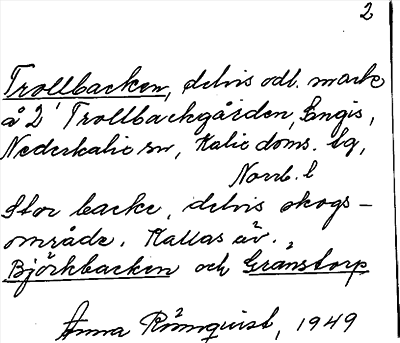 2
Trollbacken, delvis odl. mark
å 2¹ Trollbackgården, Engis,
Nederkalix sn, Kalix doms. tg,
Norrb. l
Stor backe, delvis skogs-
område. Kallas äv.
Björkbacken och Gränstorp
Anna Rönnquist, 1949